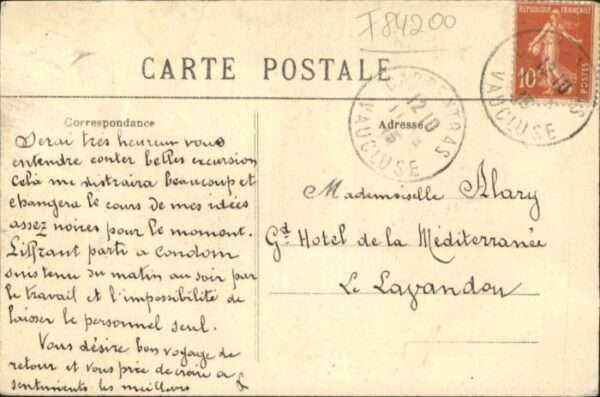 F84200
RÉPUBLIQUE FRANÇAISE
10
POSTES
CARTE POSTALE
CARPENTRAS
12-10
VAUCLUSE
12-10
VAUCLUSE
Correspondance
Adresse
Serai très heureux vous
entendre conter belles excursion
Cela me distraira beaucoup et
changera le cours de mes idées
assez noires pour le moment.
parti a Condom
suis tenu du matin au soir par
le travail et l'impossibilité de
laisser le personnel seul.
Vous désire bon voyage de
retour et vous prie de croire a
sentiments les meilleurs
Mademoiselle Alary
Gd. Hotel de la Méditerranée
Le Lavandou